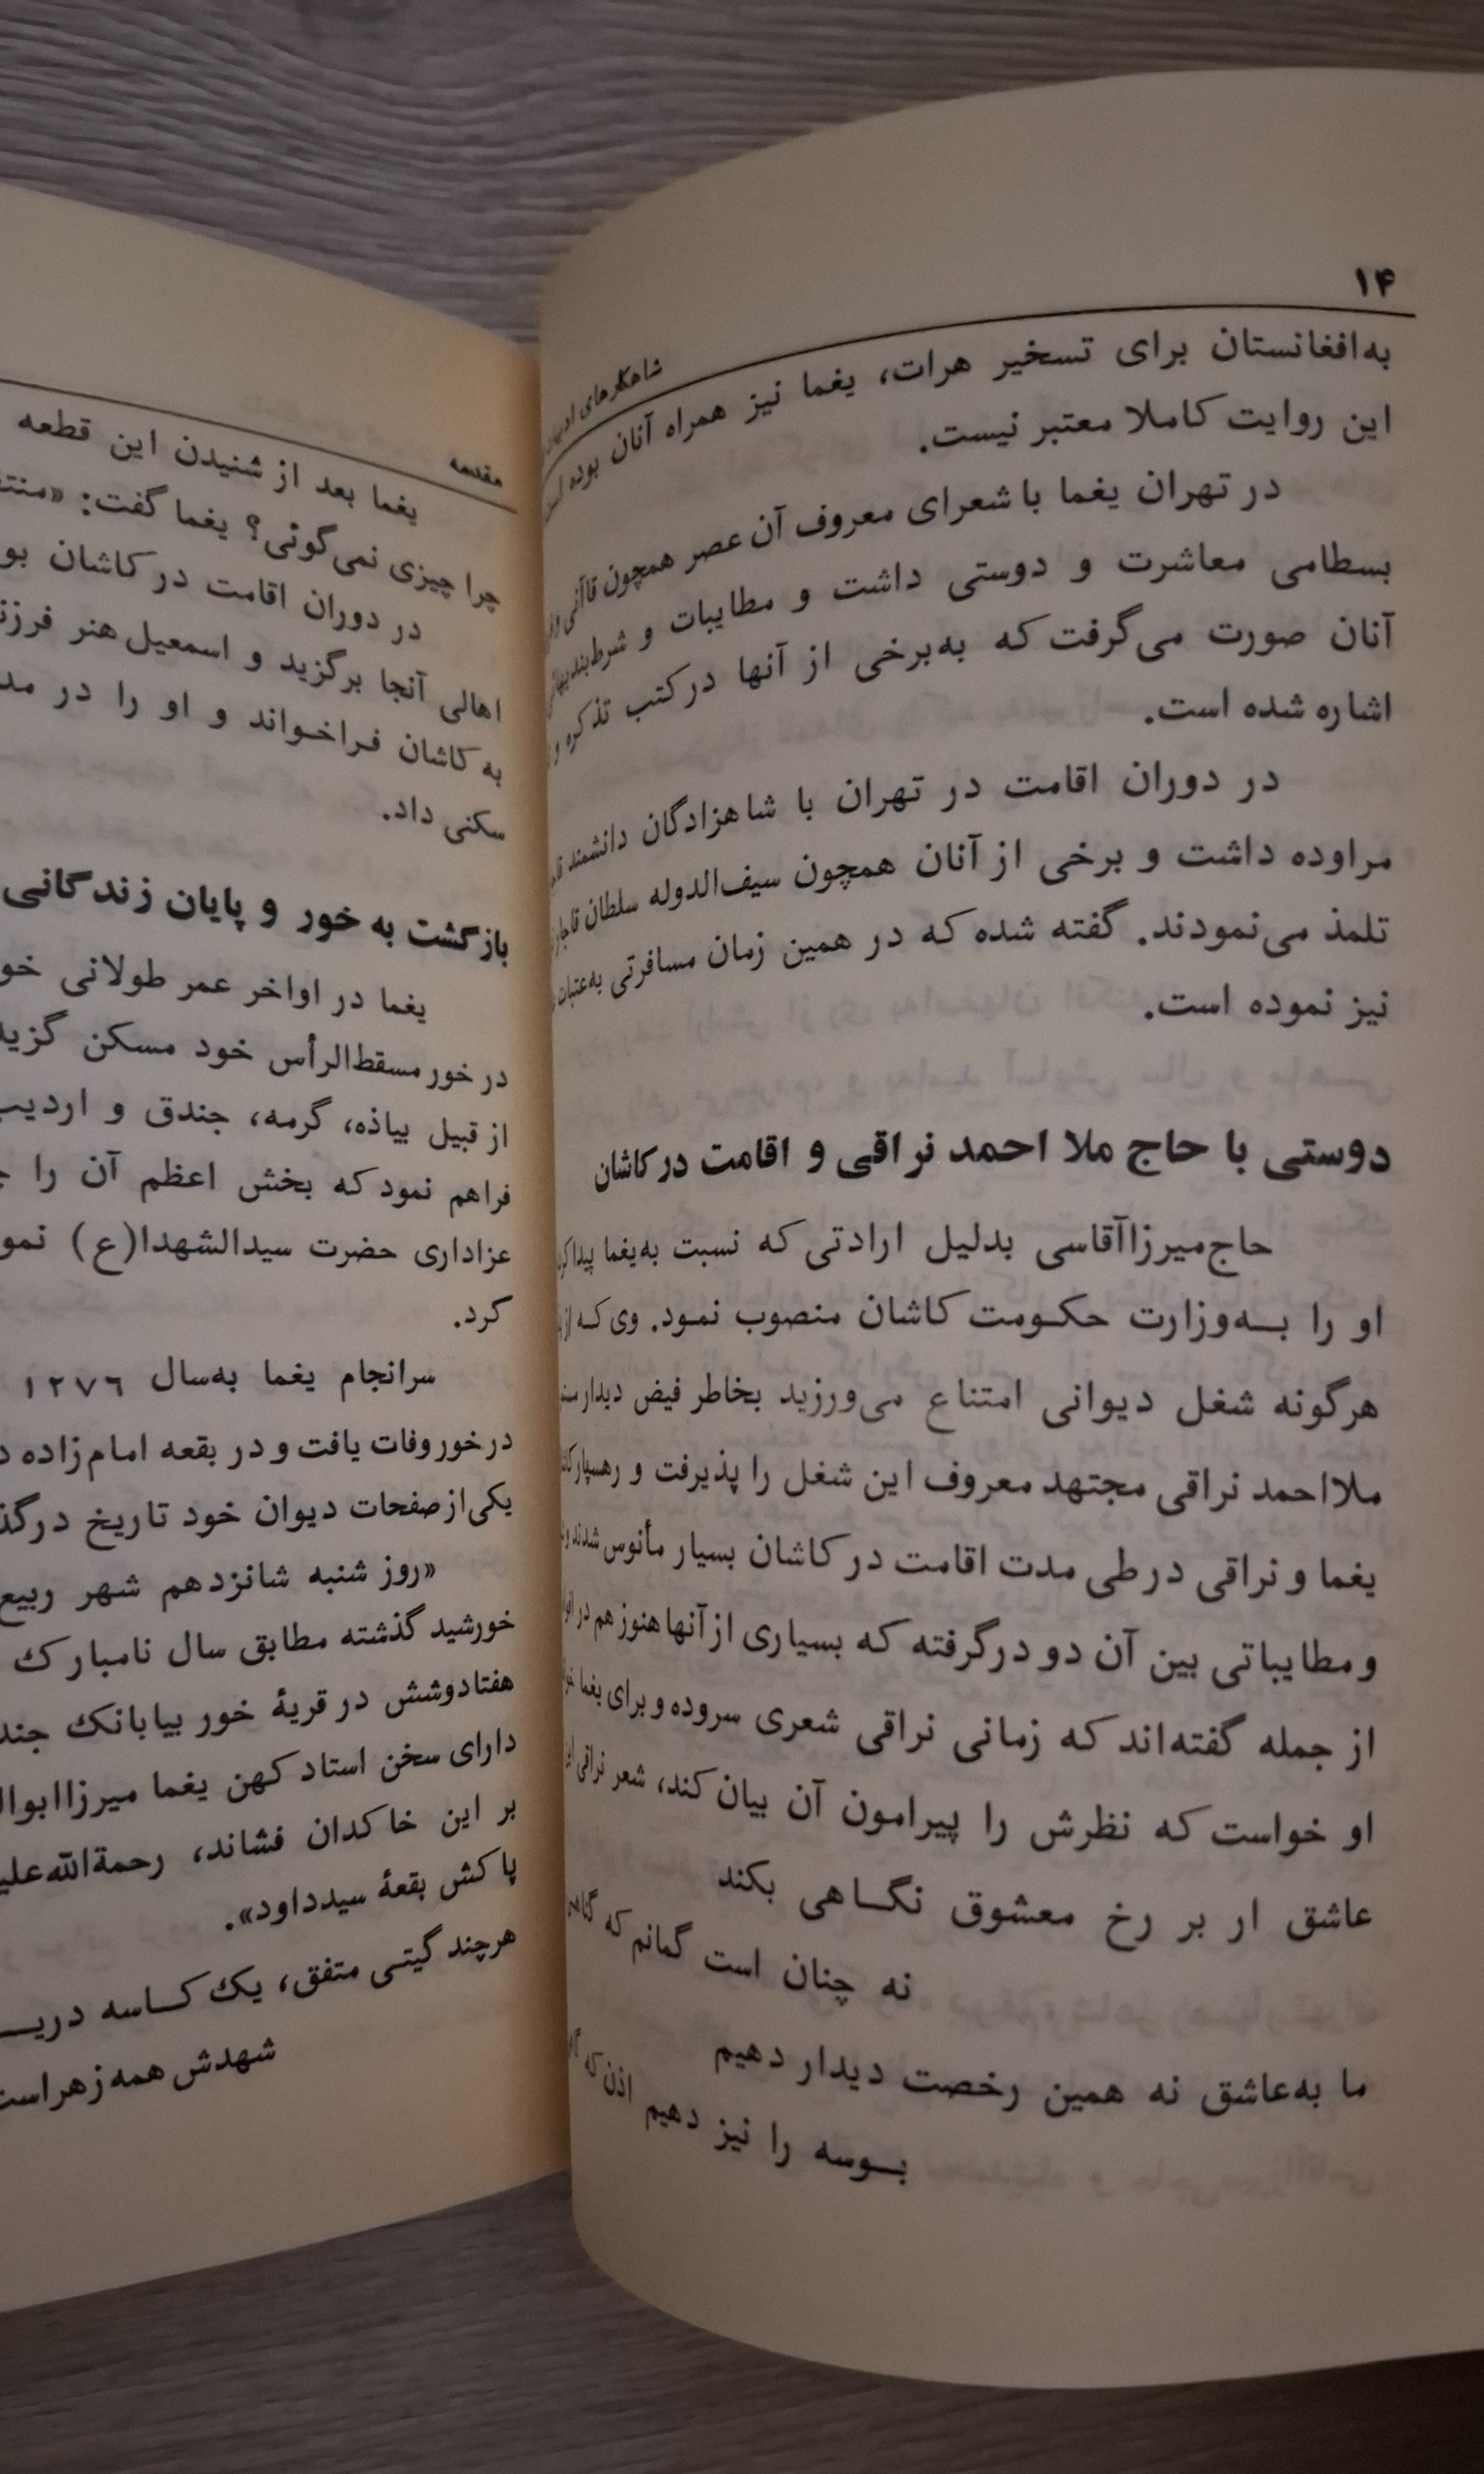 ۱۴
شاهکارهای
به‌افغانستان برای تسخیر هرات، یغما نیز همراه آنان بوده
این روایت کاملا معتبر نیست.
در تهران یغما با شعرای معروف آن عصر همچون قاآنی
بسطامی معاشرت و دوستی داشت و مطایبات و
آنان صورت می‌گرفت که به‌برخی از آنها در کتب تذکره و
اشاره شده است.
در دوران اقامت در تهران با شاهزادگان دانشمند
مراوده داشت و برخی از آنان همچون سیف‌الدوله سلطان قاجار
تلمذ می‌نمودند. گفته شده که در همین زمان مسافرتی به‌عتبات
نیز نموده است.
دوستی با حاج ملا احمد نراقی و اقامت در کاشان
حاج‌میرزاآقاسی بدلیل ارادتی که نسبت به‌یغما پیدا
او را به‌وزارت حکومت کاشان منصوب نمود. وی که از
هرگونه شغل دیوانی امتناع می‌ورزید بخاطر فیض دیدار
ملااحمد نراقی مجتهد معروف این شغل را پذیرفت و رهسپار
یغما و نراقی درطی مدت اقامت در کاشان بسیار مأنوس شدند
و مطایباتی بین آن دو درگرفته که بسیاری از آنها هنوز هم در
از جمله گفته‌اند که زمانی نراقی شعری سروده و برای یغما
او خواست که نظرش را پیرامون آن بیان کند، شعر نراقی
عاشق ار بر رخ معشوق نگاهی بکند
نه چنان است گمانم که
ما به‌عاشق نه همین رخصت دیدار دهیم
بوسه را نیز دهیم اذن که
مقدمه
یغما بعد از شنیدن این قطعه
چرا چیزی نمی‌گوئی؟ یغما گفت:
در دوران اقامت در کاشان
اهالی آنجا برگزید و اسمعیل هنر
به کاشان فراخواند و او را در
سکنی داد.
بازگشت به خور و پایان زندگانی
یغما در اواخر عمر طولانی
در خور مسقط‌الرأس خود مسکن
از قبیل بیاذه، گرمه، جندق و
فراهم نمود که بخش اعظم آن را
عزاداری حضرت سیدالشهدا(ع)
کرد.
سرانجام یغما به‌سال ۱۲۷۶
در خور وفات یافت و در بقعه امام‌زاده
یکی از صفحات دیوان خود تاریخ
«روز شنبه شانزدهم شهر ربیع
خورشید گذشته مطابق سال نامبارک
هفتادوشش در قریهٔ خور بیابانک
دارای سخن استاد کهن یغما
بر این خاکدان فشاند،
پاکش بقعهٔ سیدداود».
هرچند گیتی متفق، یک کاسه
شهدش همه زهر